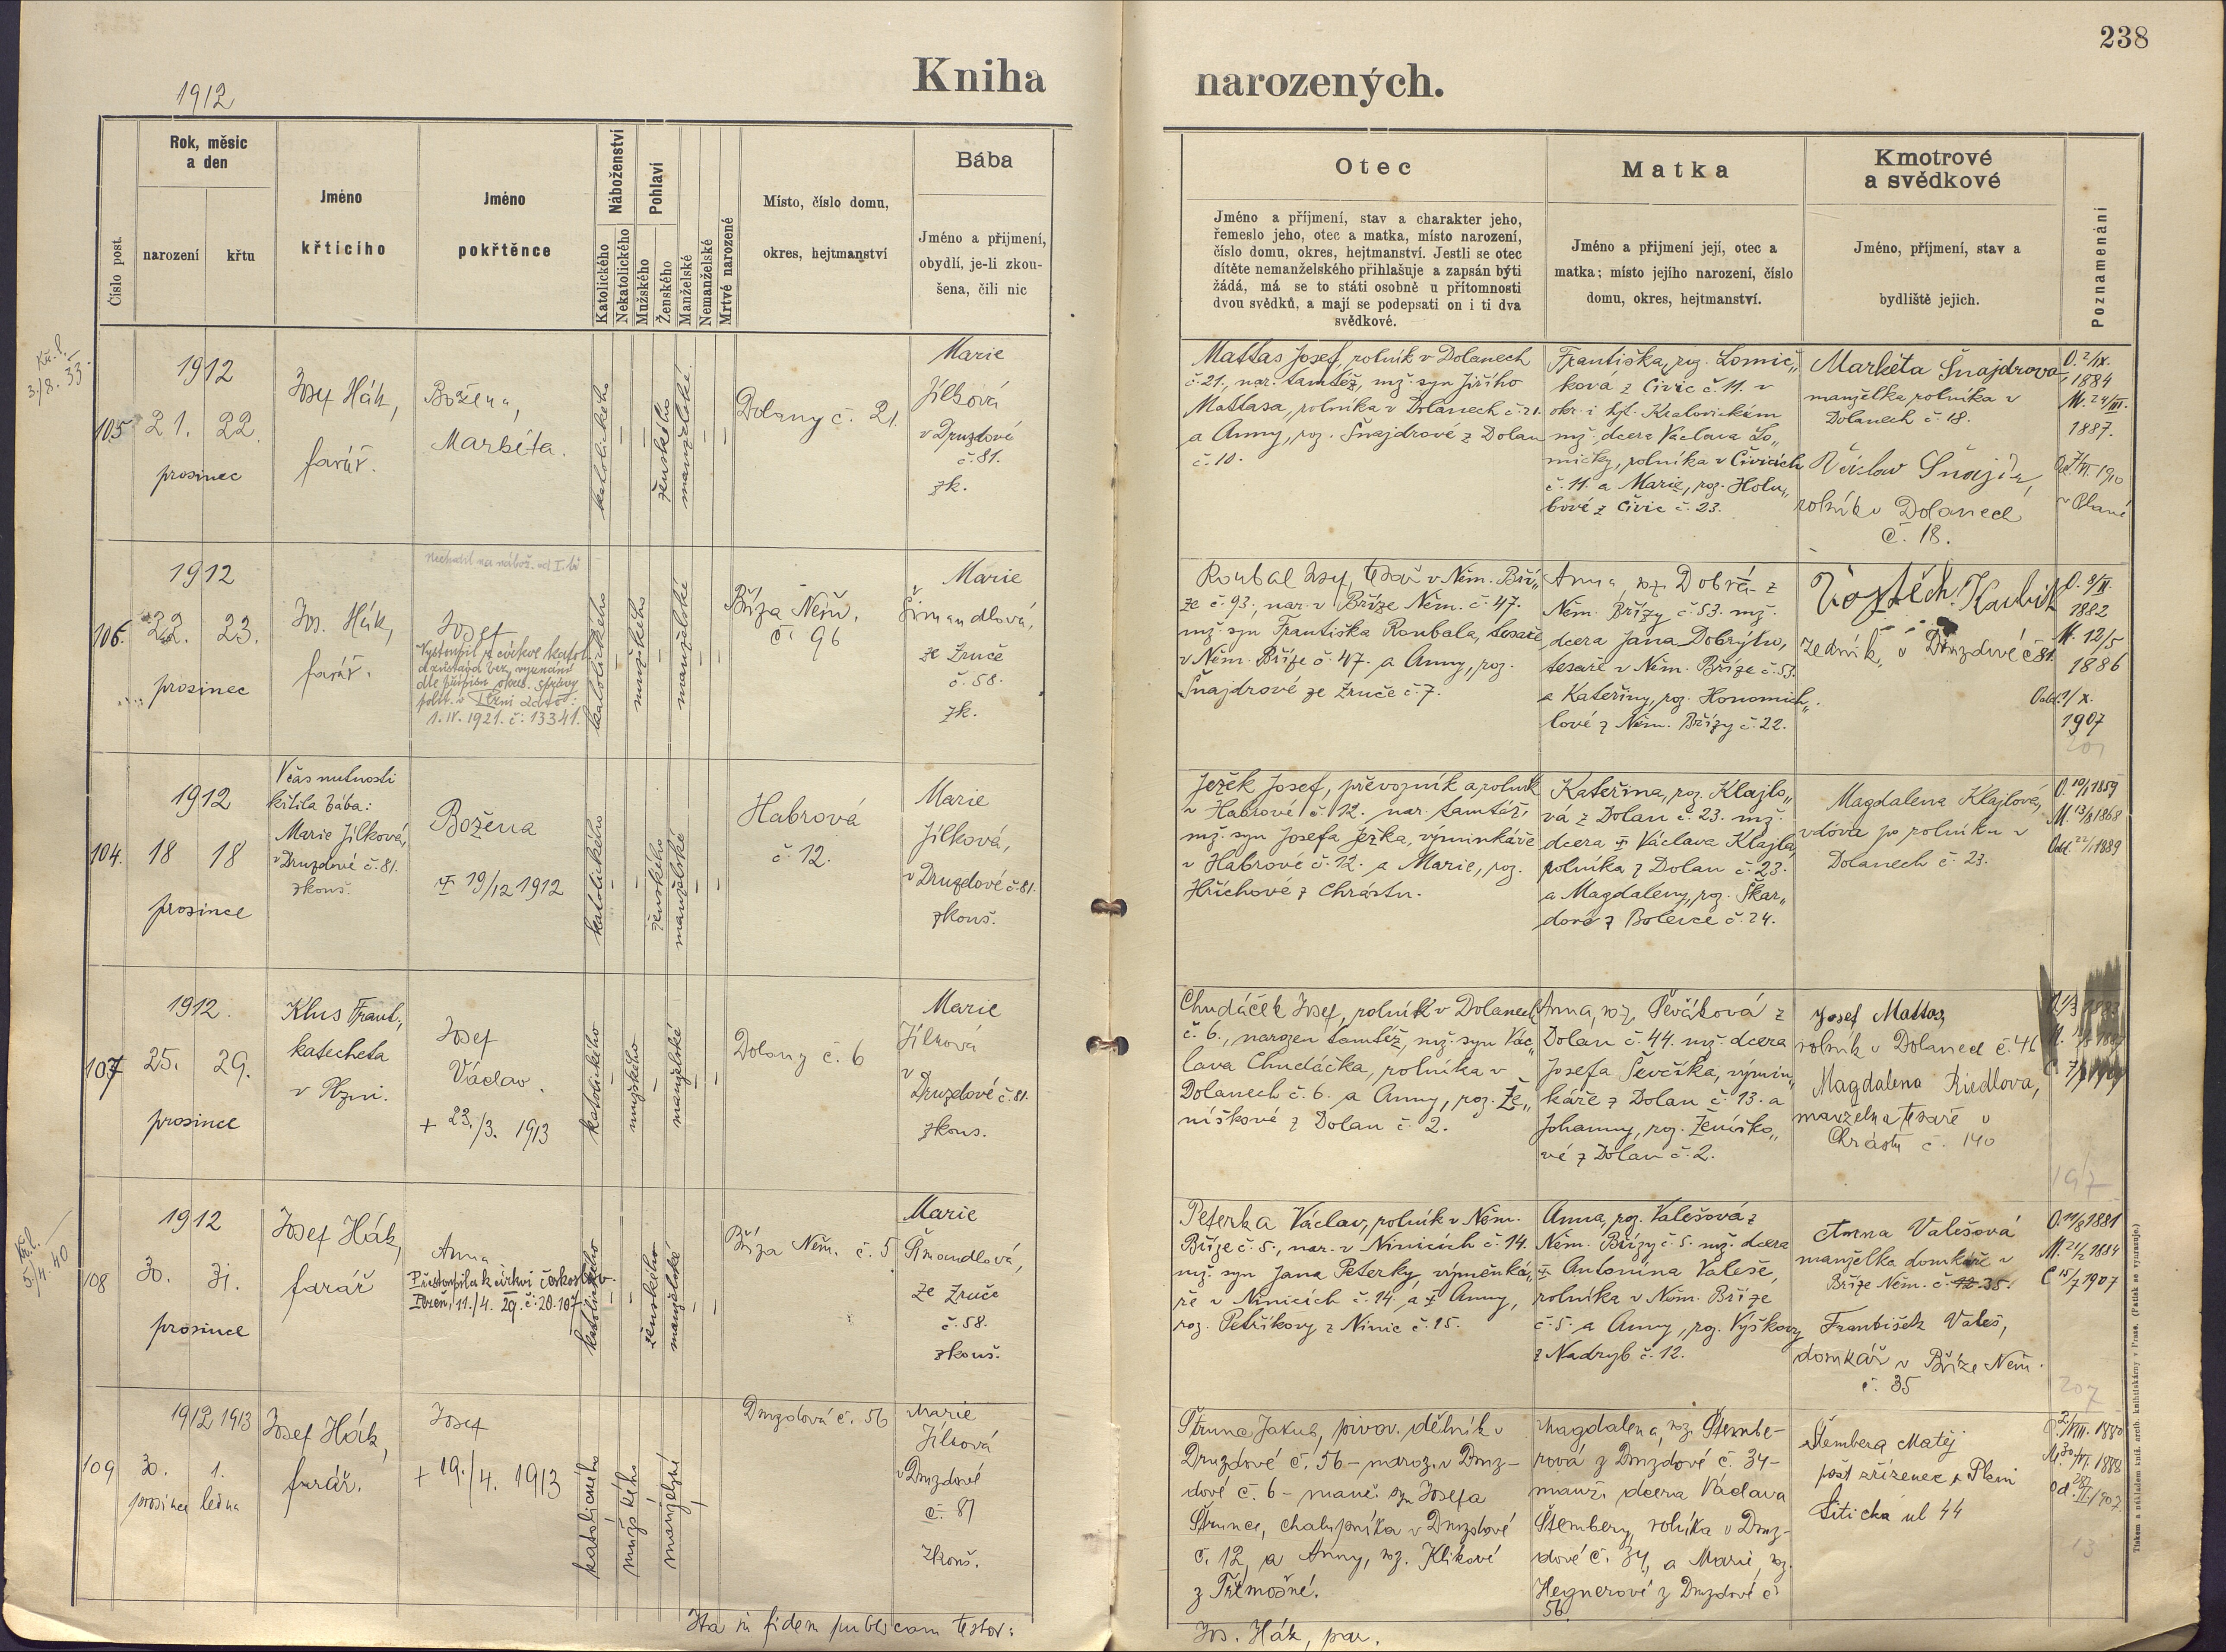 238
Kniha narozených.
1912
Číslo post.
Rok, měsíc
a den
narození
křtu
Jméno
křtícího
Jméno
pokřtěnce
Náboženství
Katolického
Nekatolického
Pohlaví
Mužského
Ženského
Manželské
Nemanželské
Mrtvě narozené
Místo, číslo domu,
okres, hejtmanství
Bába
Jméno a přijmení,
obydlí, je-li zkou-
šena, čili nic
Otec
Jméno a příjmení, stav a charakter jeho,
řemeslo jeho, otec a matka, místo narození,
číslo domu, okres, hejtmanství. Jestli se otec
dítěte nemanželského přihlašuje a zapsán býti
žádá, má se to státi osobně u přítomnosti
dvou svědků, a mají se podepsati on i ti dva
svědkové.
Matka
Jméno a přijmení její, otec a
matka; místo jejího narození, číslo
domu, okres, hejtmanství.
Kmotrové
a svědkové
Jméno, příjmení, stav a
bydliště jejich.
Poznamenání
3./8. 33.
105
1912
21. 22.
prosinec
Josef Hák,
farář.
Božena,
Markéta.
katolického
ženského
manželské
Dolany č. 21.
Marie
Jílková
v Druzdové
č. 81.
zk.
Mattas Josef, rolník v Dolanech
č. 21., nar. tamtéž, mž. syn Jiřího
Mattasa, rolníka v Dolanech č. 21.
a Anny, roz. Šnajdrové z Dolan
č. 10.
Františka, roz. Lomič„
ková z Čivic č. 11. v
okr. i hjt. Kralovickém
mž. dcera Václava Lo„
mičky, rolníka v Čivicích
č. 11. a Marie, roz. Holu„
bové z Čivic č. 23.
Markéta Šnajdrova,
manželka rolníka v
Dolanech č. 18.
Václav Šnajdr,
rolník v Dolanech
č. 18.
O. 2/IX.
1884
M. 24/III.
1887.
106.
1912
22. 23.
prosinec
Jos. Hák,
farář.
Nechodil na nábož. od I. tř
Josef
Vystoupil z církve katol.
a zůstává bez vyznání
dle přípisu okres. správy
polit. v Plzni dato:
1. IV. 1921. č. 13341.
katolického
mužského
manželské
Bříza Něm.
č. 96
Marie
Šimandlová,
ze Zruče
č. 58.
zk.
Roubal Josef, tesař v Něm. Bří„
ze č. 93., nar. v Bříze Něm. č. 47.
mž. syn Františka Roubala, tesaře
v Něm. Bříze č. 47. a Anny, roz.
Šnajdrové ze Zruče č. 7.
Anna, roz. Dobrá z
Něm. Břízy č. 53. mž.
dcera Jana Dobrýho,
tesaře v Něm. Bříze č. 53.
a Kateřiny, roz. Honomich„
lové z Něm. Břízy č. 22.
Vojtěch
zedník, v Druzdové č 81.
1882
M. 12/5
1886
1907
104.
1912
18 18
prosince
V čas nutnosti
křtila bába:
Marie Jílková,
v Druzdové č. 81.
zkouš.
Božena
19/12 1912
katolického
ženského
manželské
Habrová
č. 12.
Marie
Jílková,
v Druzdové č. 81.
zkouš.
Ježek Josef, převozník a rolník
v Habrové č. 12. nar. tamtéž,
mž. syn Josefa Ježka, výminkáře
v Habrové č. 12. a Marie, roz.
Hříchové z Chrástu.
Kateřina, roz. Klajlo„
vá z Dolan č. 23. mž.
dcera Václava Klajla,
rolníka z Dolan č. 23.
a Magdaleny, roz. Škar„
dové z Bolevce č. 24.
Magdalena Klajlová,
vdova po rolníku v
Dolanech č. 23.
O. 19/1 1859
M. 13/8 1868
Odd. 22/1 1889
107
1912.
25. 29.
prosince
Klus Frant.,
katecheta
v Plzni.
Josef
Václav.
+ 23./3. 1913
katolického
mužského
manželské
Dolany č. 6
Marie
Jílková
v
Druzdové č. 81.
zkouš.
Chudáček Josef, rolník v Dolanech
č. 6., narozen tamtéž, mž. syn Vác„
lava Chudáčka, rolníka v
Dolanech č. 6. a Anny, roz. Že„
níškové z Dolan č. 2.
Anna, roz. Ševčíková z
Dolan č. 44. mž. dcera
Josefa Ševčíka, výmin„
káře z Dolan č. 13. a
Johanny, roz. Ženíško„
vé z Dolan č. 2.
Josef Mattas,
rolník v Dolanech č. 46
Magdalena Riedlova,
manželka tesaře v
Chrástu č. 140
197
5./4. 40
108
1912
30. 31.
prosince
Josef Hák,
farář
Anna
Přestoupila k církvi českoslov.
Plzeň, 11./4. 29. č. 20.107
katolického
ženského
manželské
Bříza Něm. č. 5
Marie
Šimandlová,
ze Zruče
č. 58.
zkouš.
Peterka Václav, rolník v Něm.
Bříze č. 5., nar. v Ninicích č. 14.
mž. syn Jana Peterky, výměnká„
ře v Ninicích č. 14. a Anny,
roz. Petříkovy z Ninic č. 15.
Anna, roz. Valešová z
Něm. Břízy č. 5. mž. dcera
Antonína Valeše,
rolníka v Něm. Bříze
č. 5. a Anny, roz. Vyškovy
z Nadryb č. 12.
Anna Valešová
manželka domkáře v
Bříze Něm. č. 12. 35.
František Valeš,
domkář v Bříze Něm.
č. 35
O. 11/8 1881
M. 21/2 1884
C 15/7 1907
207
109
1912 1913
30. 1.
prosince ledna
Josef Hák,
farář.
Josef
+ 19./4. 1913
katolického
mužského
manželské
Druzdová č. 56
Marie
Jílková
v Druzdové
č. 81
zkouš.
Štrunc Jakub, pivov. dělník v
Druzdové č. 56 - naroz. v Druz-
dové č. 6 - manž. syn Josefa
Štrunce, chalupníka v Druzdové
č. 12, a Anny, roz. Klikové
z Třemošné.
Magdalena, roz. Štembe-
rová z Druzdové č. 34 -
manž. dcera Václava
Štembery, rolníka v Druz-
dové č. 34, a Marie, roz.
Hegnerové z Druzdové č
56.
Štembera Matěj
pošt zřízenec v Plzni
Litická ul 44
13
Ita in fidem publicam testor:
Jos. Hák, par.
Tiskem a nákladem kníž. arcib. knihtiskárny v Praze. (Patisk se vyhrazuje.)